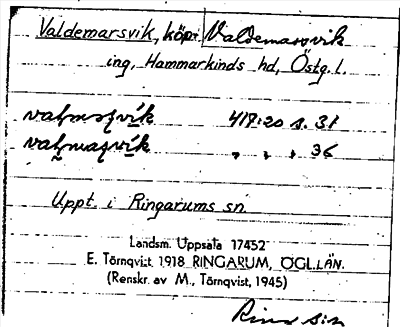 Valdemarsvik, köp. Valdemarsvik
ing, Hammarkinds hd, Östg. l.
417:20 s. 31
" " " 36
Uppt. i Ringarums sn.
Landsm. Uppsala 17452
E. Törnqvist 1918 RINGARUM, ÖGL. LÄN.
(Renskr. av M. Törnqvist, 1945)